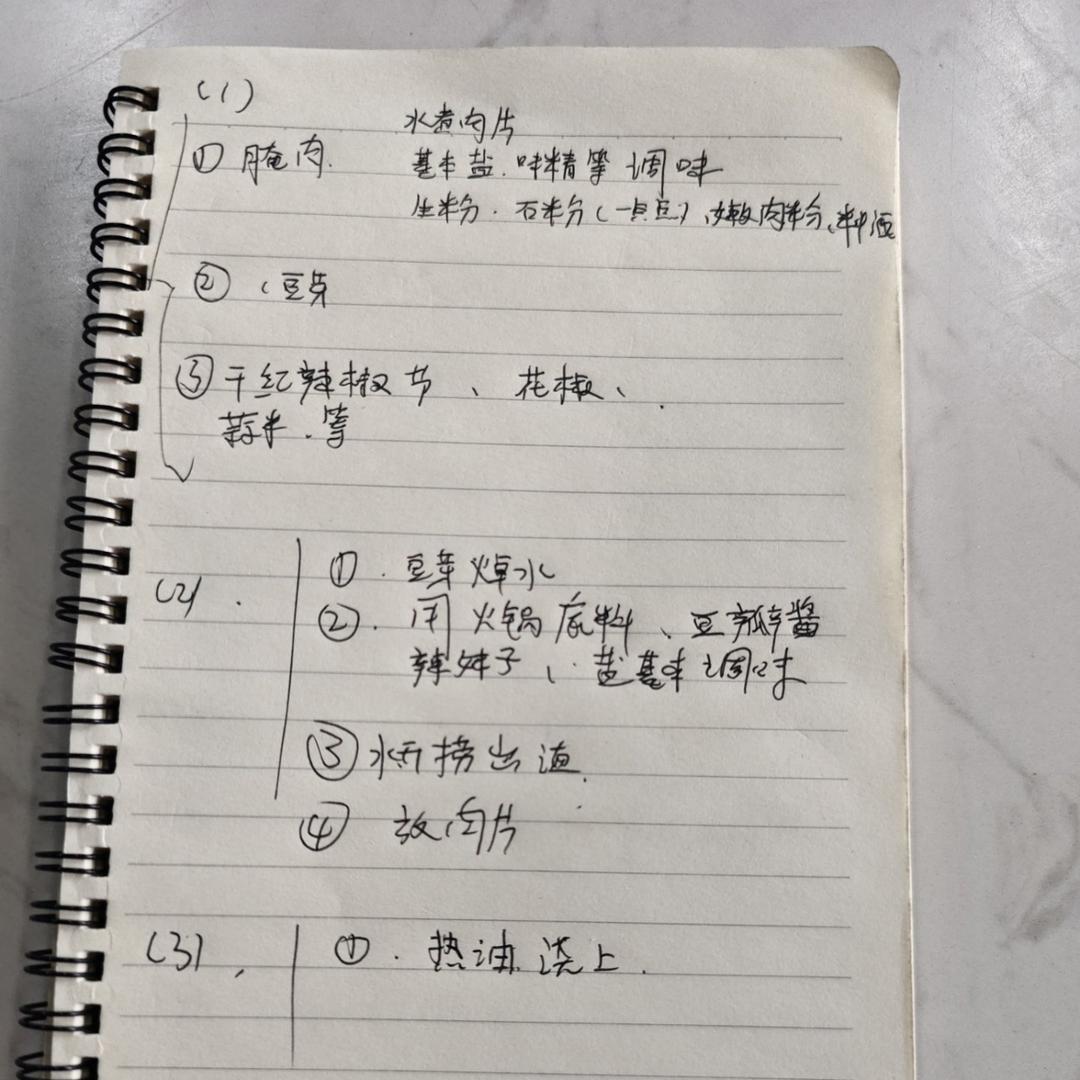 (1)
水煮肉片
① 腌肉. 基本盐.味精等调味
生粉.石粉(一点点)、嫩肉粉、料酒
② 、豆芽
③ 干红辣椒节、花椒、
蒜米.等
(2). ①.豆芽焯水
②.用火锅底料、豆瓣酱
辣妹子、盐基本调味
③ 水开捞出渣.
④ 放肉片
(3), ①.热油浇上.